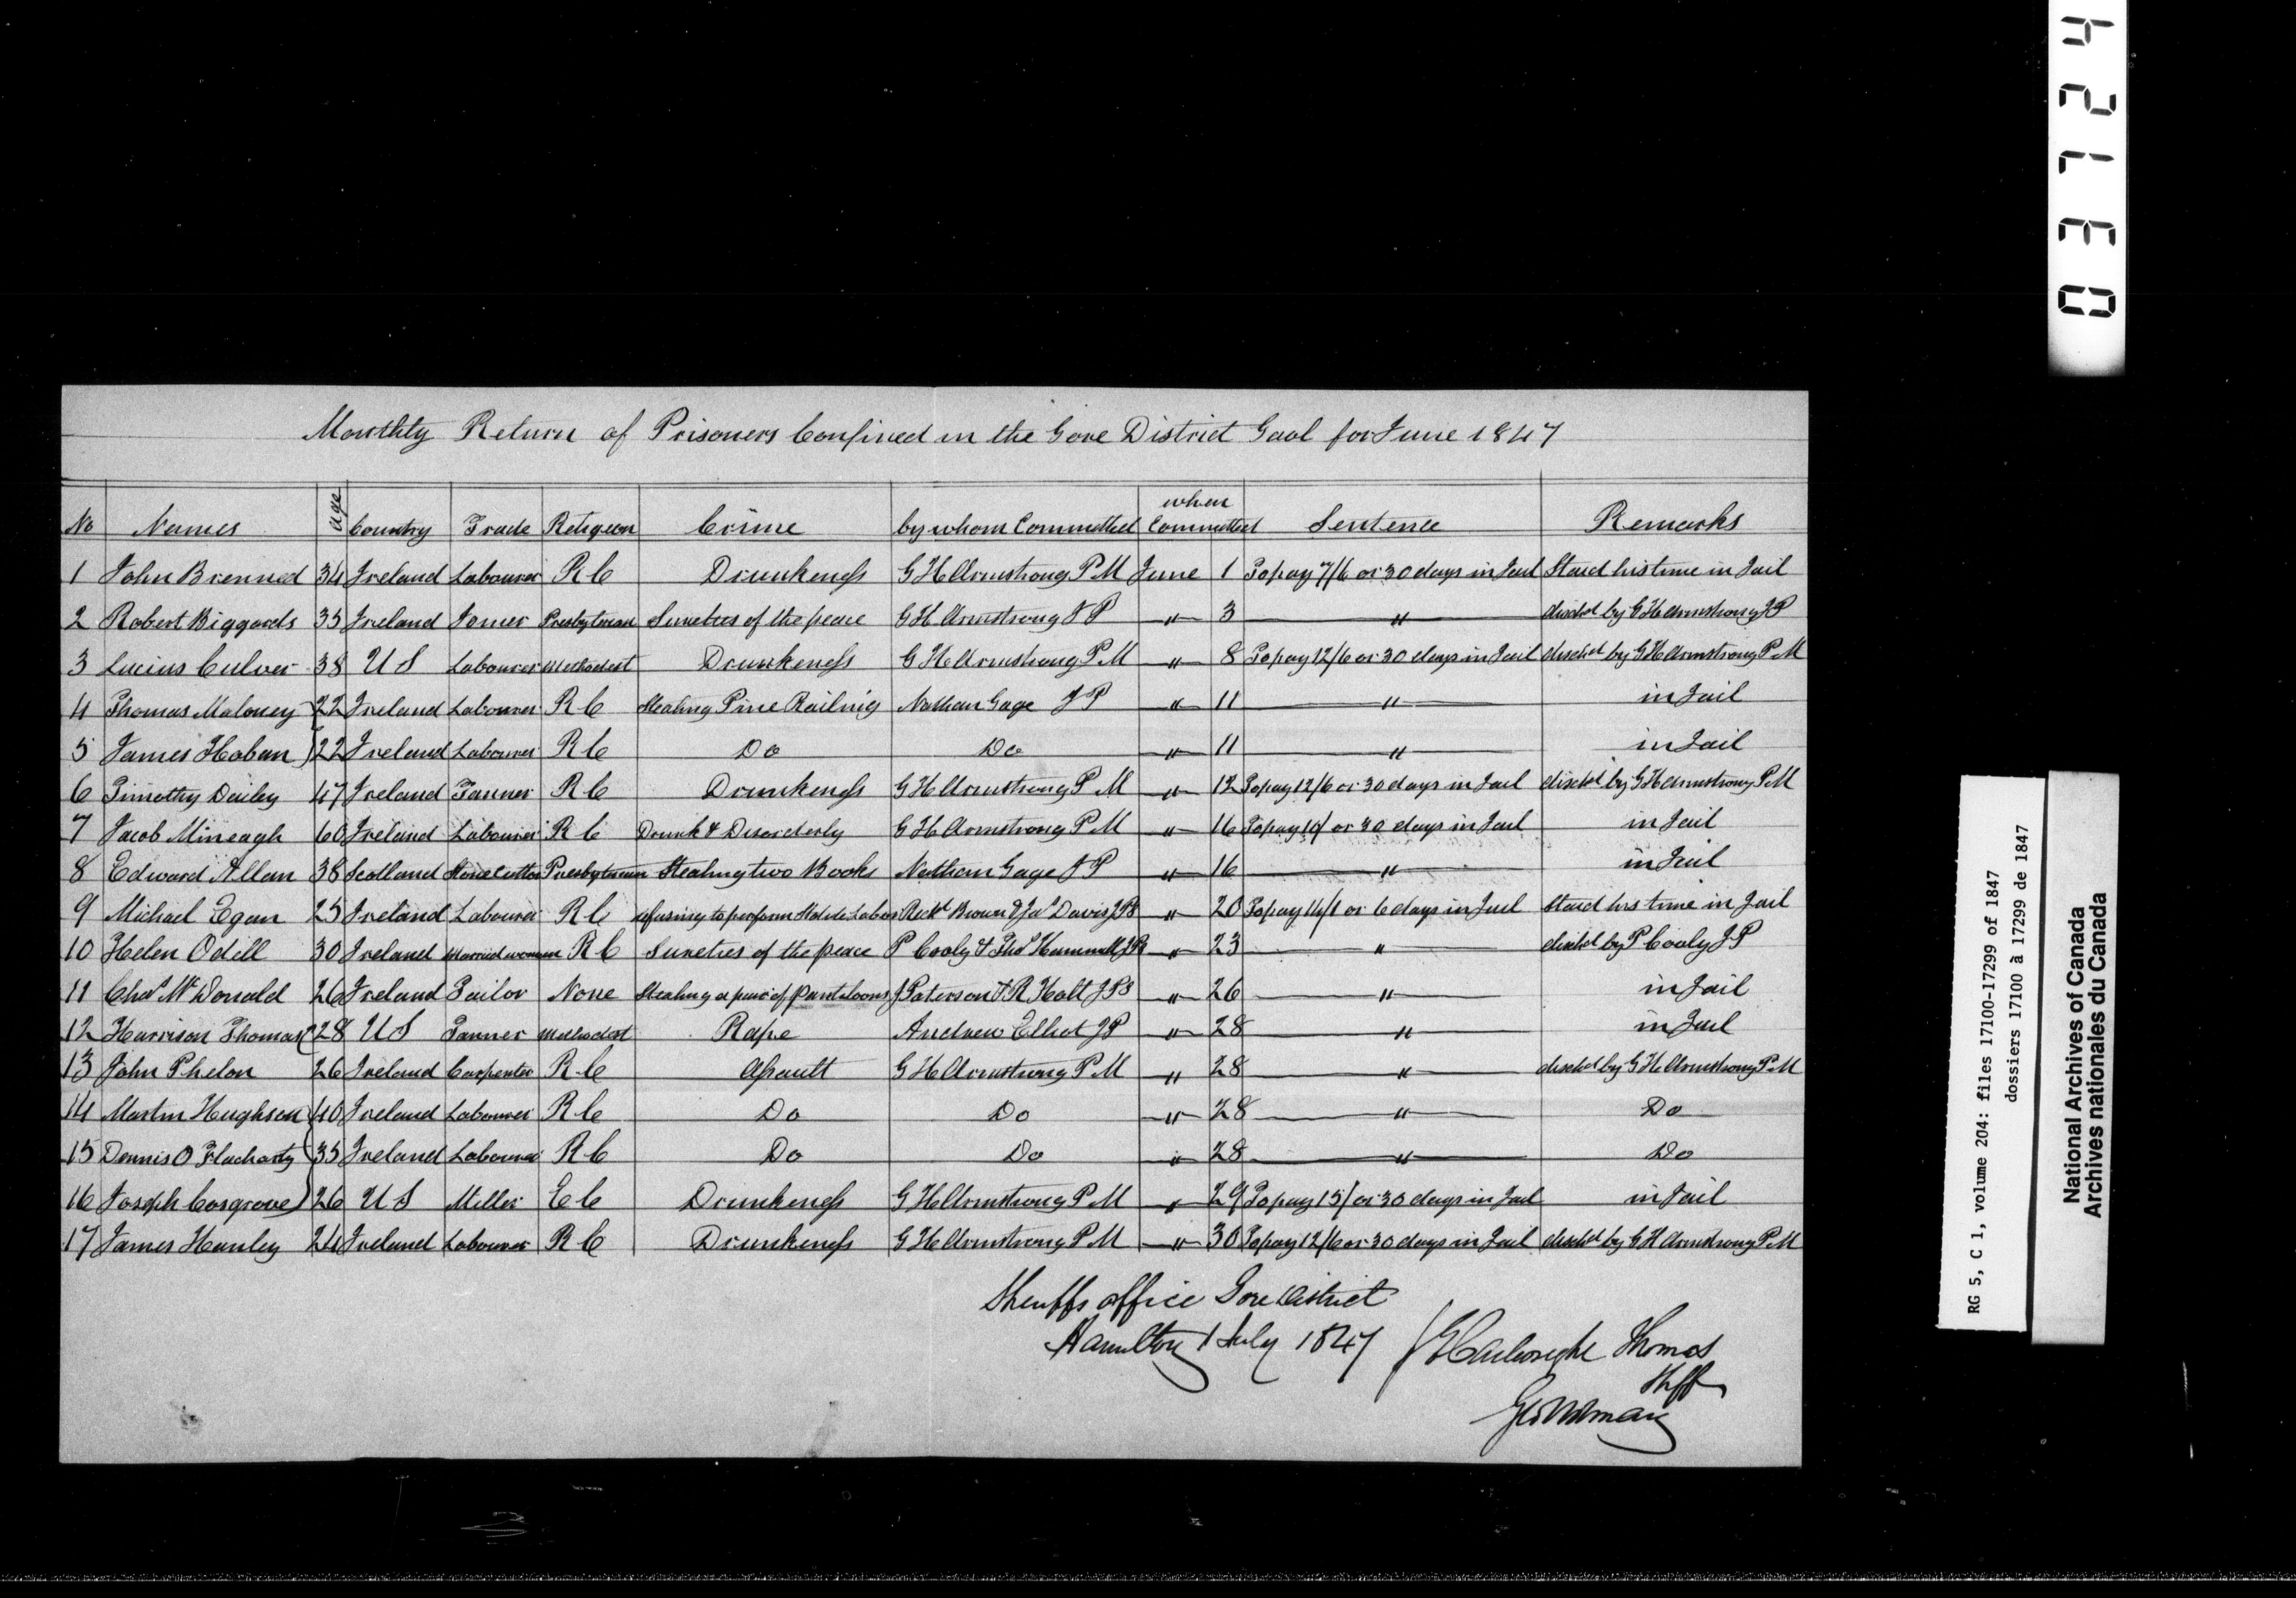 Monthly Return of Prisoners Confined in the Gore District Gaol for June 1847
No Names age Country Trade Religion Crime by whom Committed when Committed Sentence Remarks
1 John Brenned 34 Ireland Labourer R C Drunkeness G H Armstrong P M June 1 To pay 7/6 or 30 days in Jail Staid his time in Jail
2 Robert Biggards 35 Ireland Joiner Presbyterian Sureties of the peace G H Armstrong J P " 3 " dischd by G H Armstrong J P
3 Lucius Culver 38 U S Labourer Methodest Drunkeness G H Armstrong P M " 8 To pay 12/6 or 30 days in Jail dischd by G H Armstrong P M
4 Thomas Maloney 22 Ireland Labourer R C Stealing Pine Railing Nathan Gage J P " 11 " in Jail
5 James Hoban 22 Ireland Labourer R C Do Do " 11 " in Jail
6 Timothy Dailey 47 Ireland Tanner R C Drunkeness G H Armstrong P M " 12 To pay 12/6 or 30 days in Jail dischd by G H Armstrong P M
7 Jacob Mineagh 60 Ireland Labourer R C Drunk & Disorderly G H Armstrong P M " 16 To pay 10/ or 30 days in Jail in Jail
8 Edward Allan 38 Scotland Stone Cutter Presbyterian Stealing two Books Nathan Gage J P " 16 " in Jail
9 Michael Egan 25 Ireland Labourer R C refusing to perform Statute Labor Richd Brown & Jas Davis JPs " 20 To pay 14/1 or 6 days in Jail Staid his time in Jail
10 Helen Odell 30 Ireland Married woman R C Sureties of the peace P Cooly & Thos Hammill JPs " 23 " dischd by P Cooly J P
11 Chas McDonald 26 Ireland Tailor None Stealing a pair of pantaloons J Paterson & R Holt JPs " 26 " in Jail
12 Harrison Thomas 28 U S Tanner Methodest Rape Andrew Elliot JP " 28 " in Jail
13 John Phelon 26 Ireland Carpenter R C Assault G H Armstrong P M " 28 " dischd by G H Armstrong P M
14 Martin Hughson 40 Ireland Labourer R C Do Do " 28 " Do
15 Dennis O Flacharty 35 Ireland Labourer R C Do Do " 28 " Do
16 Joseph Cosgrove 26 U S Miller E C Drunkeness G H Armstrong P M " 29 To pay 15/ or 30 days in Jail in Jail
17 James Hanley 24 Ireland Labourer R C Drunkeness G H Armstrong P M " 30 To pay 12/6 or 30 days in Jail dischd by G H Armstrong P M
Sheriffs office Gore District
Hamilton 1 July 1847
Thomas
Shff
03724
RG 5, C 1, volume 204: files 17100-17299 of 1847
dossiers 17100 à 17299 de 1847
National Archives of Canada
Archives nationales du Canada